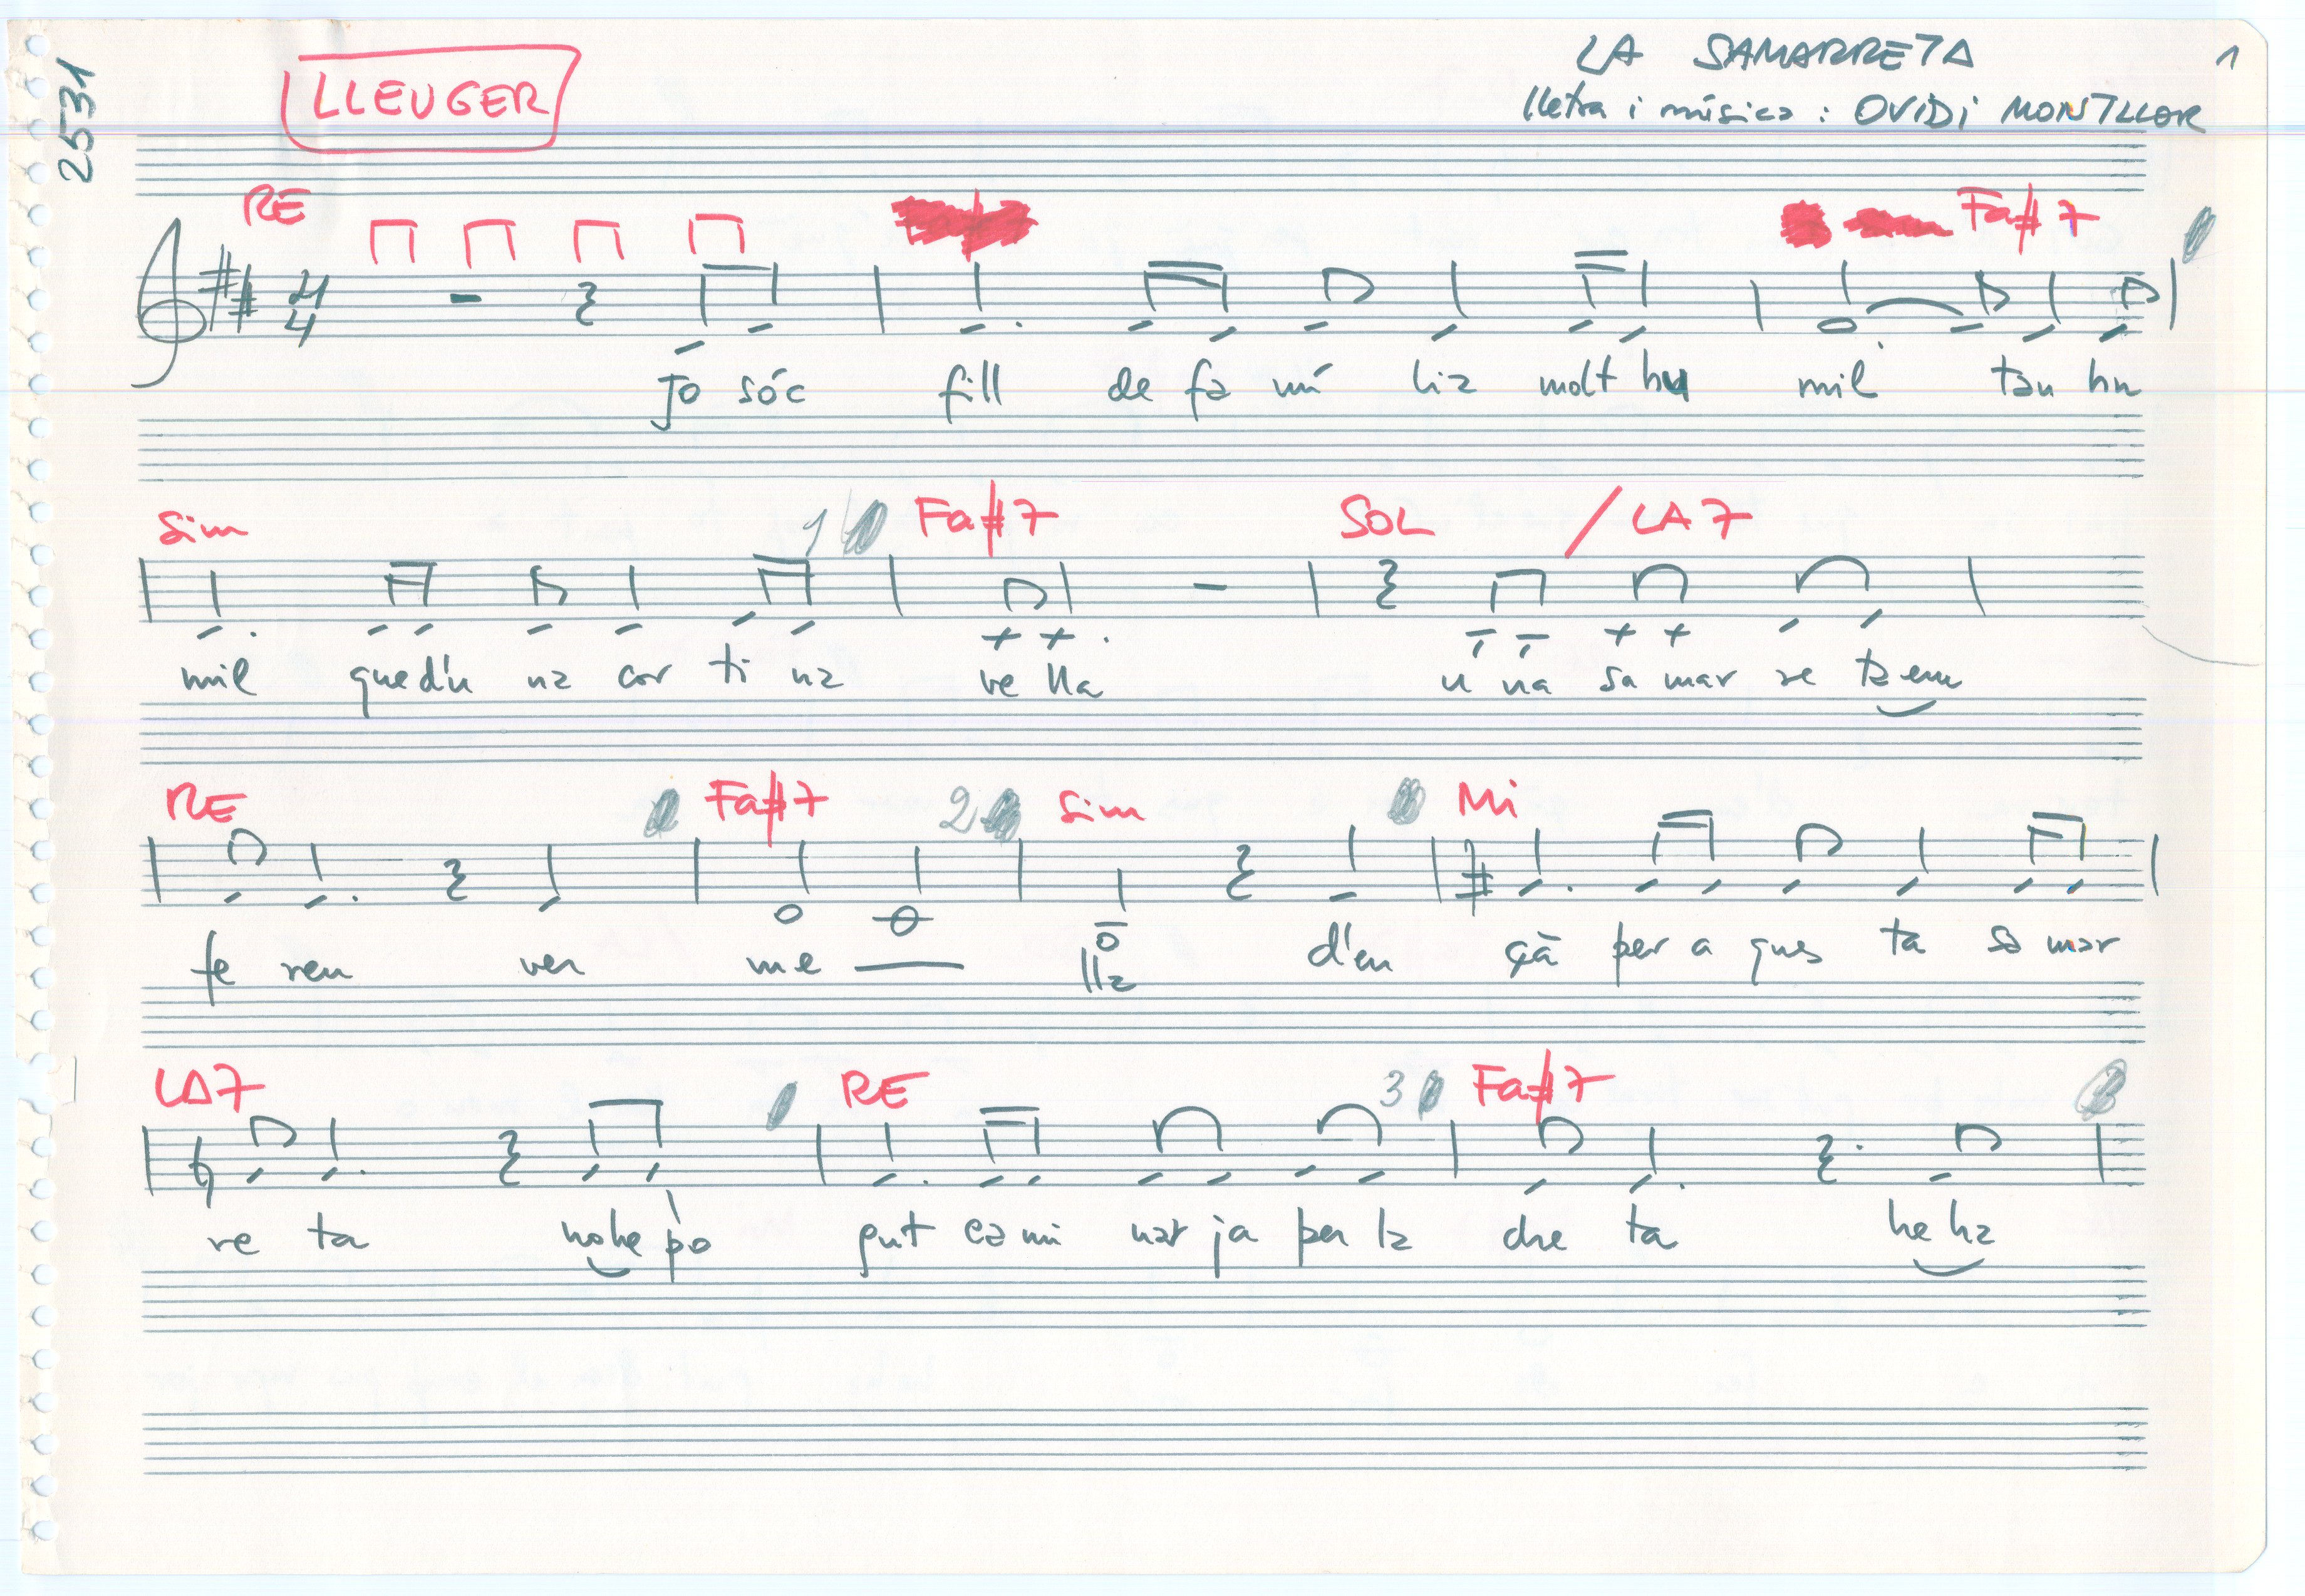 2531
LLEUGER
LA SAMARRETA 1
lletra i música : OVIDI MONTLLOR
RE Fa#7
4
4
Jo sóc fill de fa mí lia molt hu mil tan hu
Sim 1 Fa#7 SOL / LA7
mil que d'u na cor ti na ve lla u na sa mar re ta em
RE Fa#7 2 Sim Mi
fe ren ver me lla d'en çà per a ques ta sa mar
LA7 RE 3 Fa#7
re ta no he po gut ca mi nar ja per la dre ta he ha